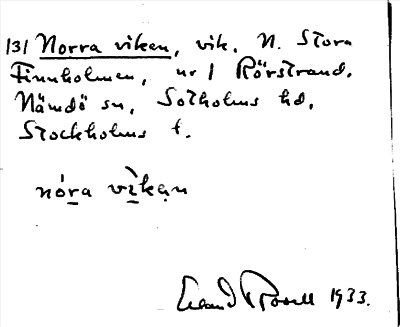 131 Norra viken, vik. N. Stora
Finnholmen, nr 1 Rörstrand.
Nämdö sn, Sotholms hd,
Stockholms l.
nó̱ra vì̱kąn
Erland Rosell 1933.